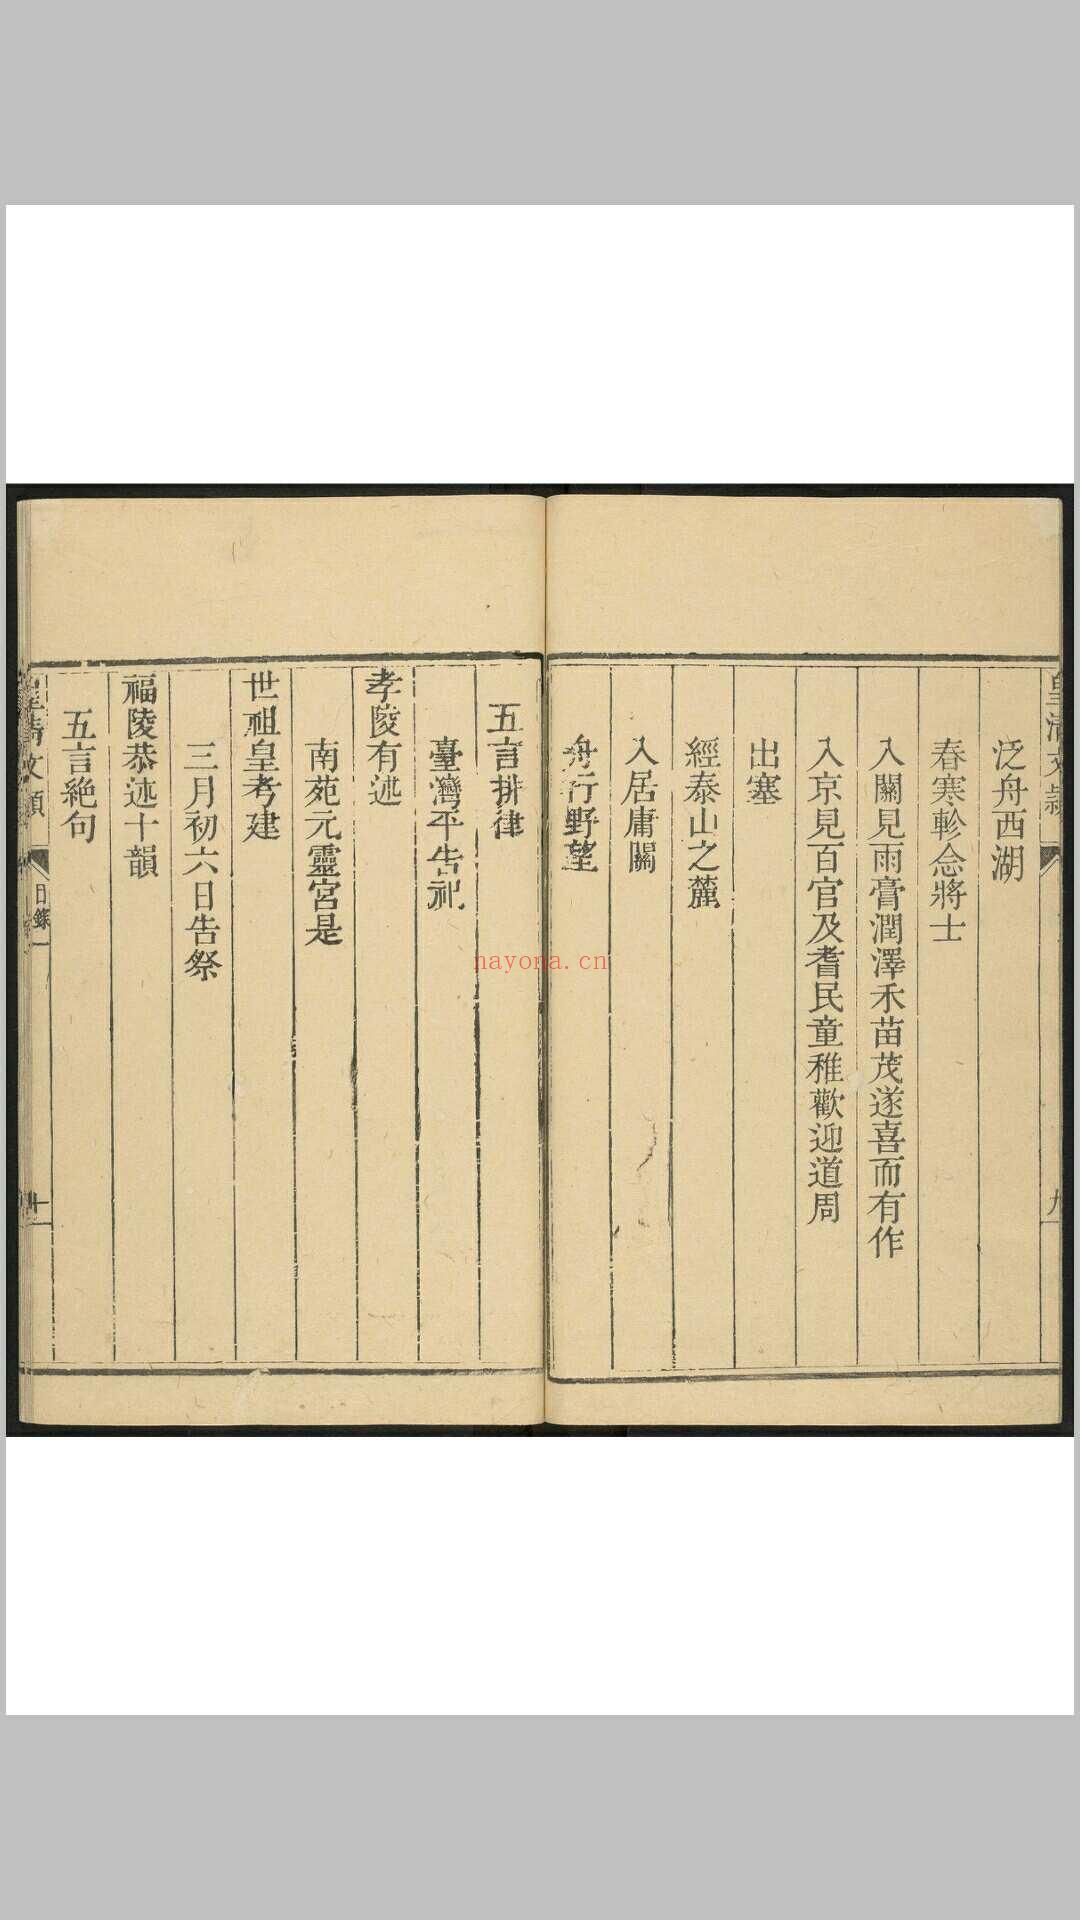 皇清文
九
泛舟西湖
春寒軫念將士
入關見雨膏潤澤禾苗茂遂喜而有作
入京見百官及耆民童稚歡迎道周
出塞
經泰山之麓
入居庸關
舟行野望
五言排律
臺灣平告祀
孝陵有述
南苑元靈宮是
世祖皇考建
三月初六日告祭
福陵恭述十韻
五言絶句
皇清文類
目錄一
十
nayona.cn